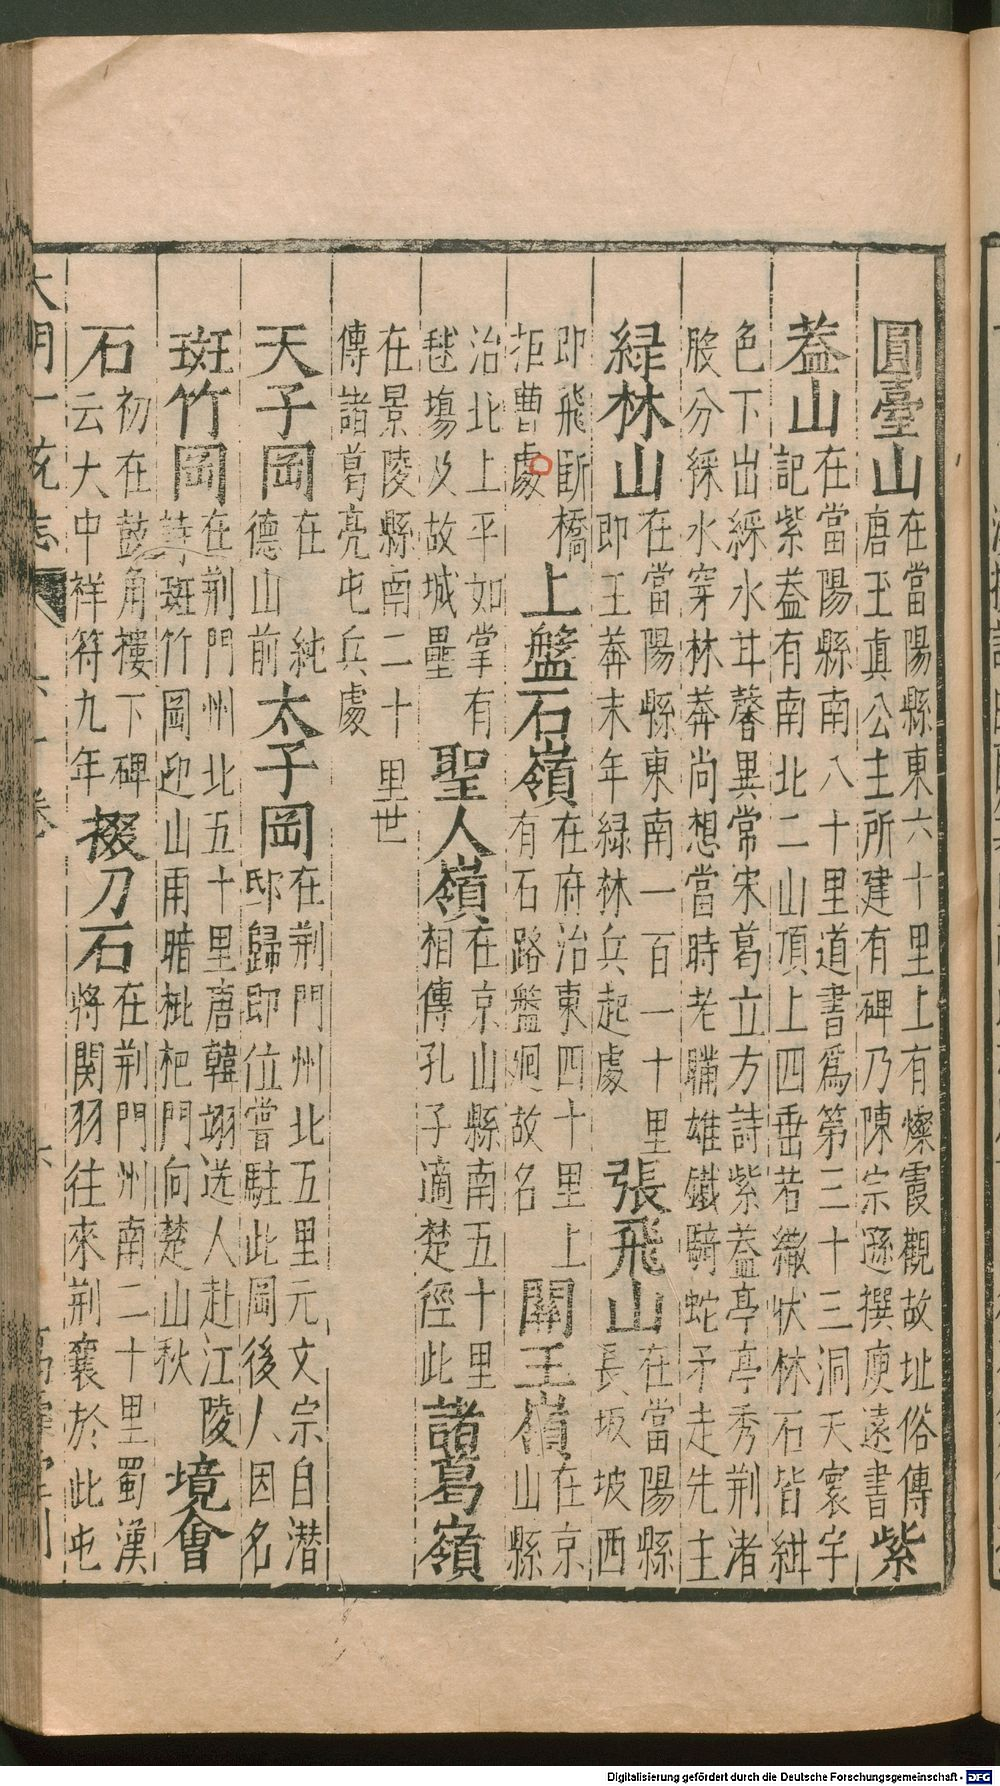 圓臺山在當陽縣東六十里上有燦霞觀故址俗傳唐玉眞公主所建有碑乃陳宗遜撰庾遠書紫
蓋山在當陽縣南八十里道書爲第三十三洞天寰宇記紫蓋有南北二山頂上四垂若繖狀林石皆紺
色下出綵水甘馨異常宋葛立方詩紫蓋亭亭秀荆渚股分綵水穿林莽尚想當時老瞞雄鐵騎蛇矛走先主
緑林山在當陽縣東南一百一十里即王莽末年緑林兵起處張飛山在當陽縣長坂坡西
即飛斷橋拒曹處上盤石嶺在府治東四十里上有石路盤廻故名關王嶺在京山縣
治北上平如掌有毬塲及故城壘聖人嶺在京山縣南五十里相傳孔子適楚徑此諸葛嶺
在景陵縣南二十里世傳諸葛亮屯兵處
天子岡在純德山前太子岡在荆門州北五里元文宗自潜邸歸即位嘗駐此岡後人因名
斑竹岡在荆門州北五十里唐韓翊送人赴江陵詩斑竹岡迎山雨暗枇杷門向楚山秋境會
石初在鼓角樓下碑云大中祥符九年掇刀石在荆門州南二十里蜀漢將関羽往來荆襄於此屯
大明一統志
Digitalisierung gefördert durch die Deutsche Forschungsgemeinschaft - DFG